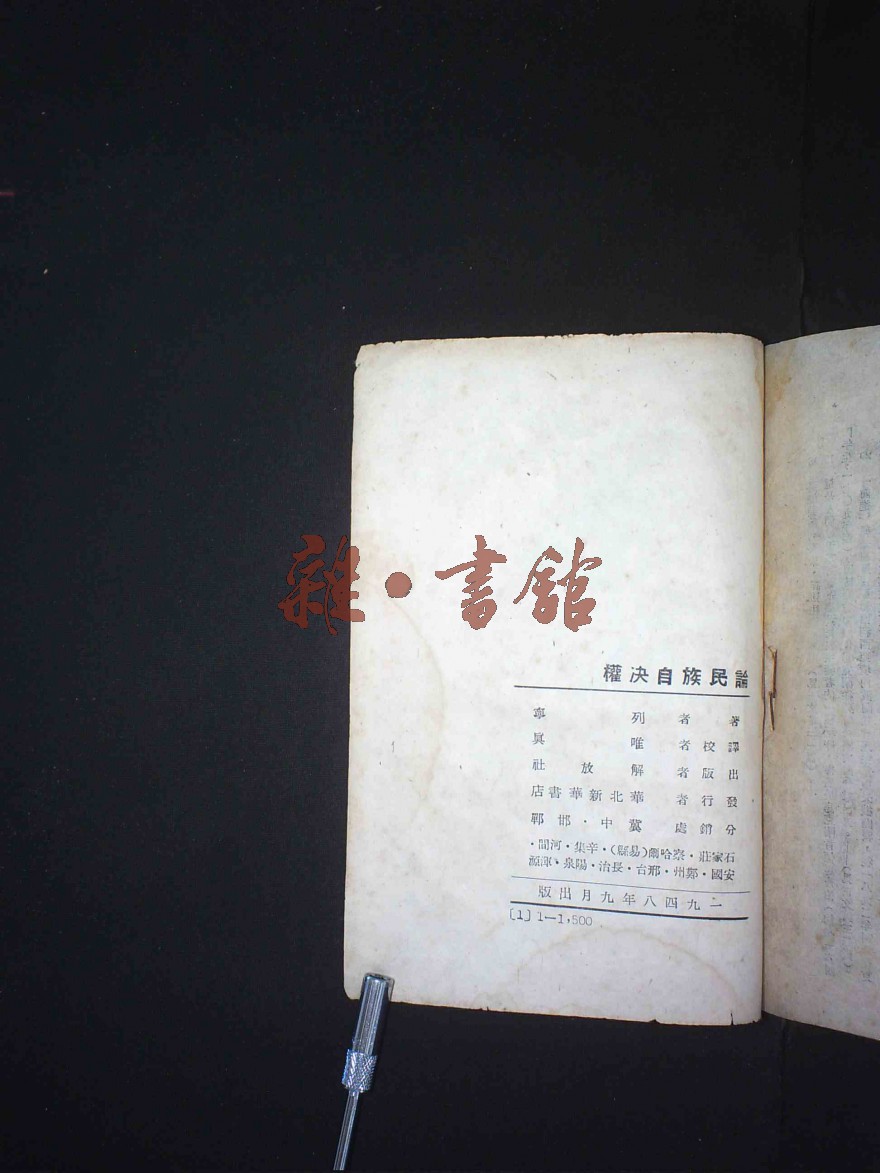 雜·書舘
論民族自决權
著者 列寧
譯校者 唯眞
出版者 解放社
發行者 華北新華書店
分銷處 冀中·邯鄲
石家莊·察哈爾(易縣)·辛集·河間·
安國·鄭州·邢台·長治·陽泉·渾源
一九四八年九月出版
〔1〕1—1,500